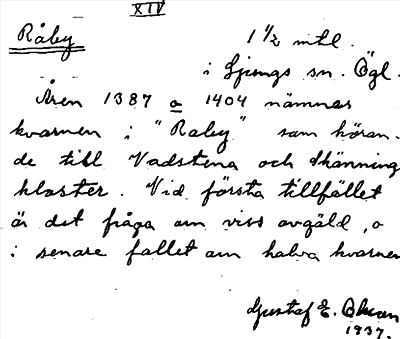 XIV
Råby 1 1/2 mtl.
i Ljungs sn. Ögl.
Åren 1387 o 1404 nämnas
kvarnen i "Raby" som höran-
de till Vadstena och Skänning
kloster. Vid första tillfället
är det fråga om viss avgäld, o
i senare fallet om halva kvarnen
Gustaf E. Öhman
1937.